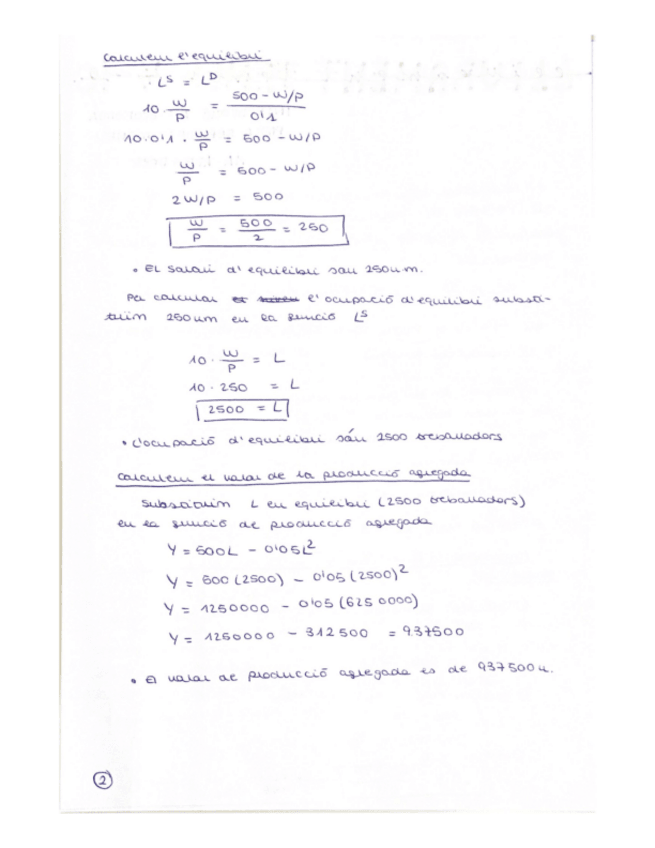 Calculem l'equilibri
· Lˢ = Lᴰ
10 · W/P = (500 - W/P) / 0'1
10·0'1 · W/P = 500 - W/P
W/P = 500 - W/P
2W/P = 500
W/P = 500/2 = 250
• El salari d'equilibri són 250 u.m.
Per calcular l'ocupació d'equilibri substi-
tuïm 250 um en la funció Lˢ
10 · W/P = L
10 · 250 = L
2500 = L
• L'ocupació d'equilibri són 2500 treballadors
Calculem el valor de la producció agregada
Substituïm L en equilibri (2500 treballadors)
en la funció de producció agregada
Y = 500L - 0'05L²
Y = 500 (2500) - 0'05 (2500)²
Y = 1250000 - 0'05 (6250000)
Y = 1250000 - 312500 = 937500
• El valor de producció agregada és de 937500 u.
2